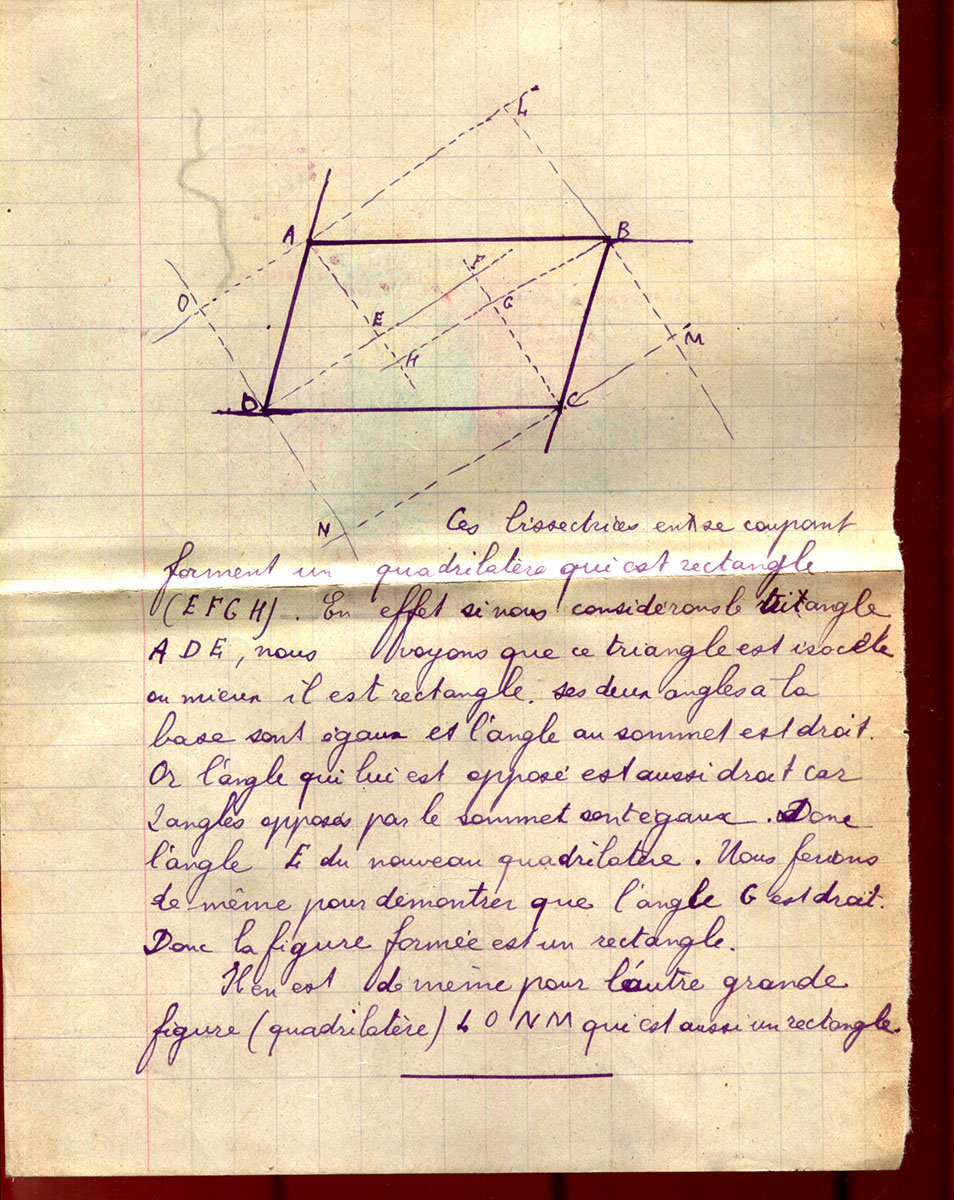 L
A
B
O
F
G
E
H
M
D
C
N
Ces bissectrices en se coupant
forment un quadrilatère qui est rectangle
(EFGH). En effet si nous considérons le triangle
ADE, nous voyons que ce triangle est isocèle
ou mieux il est rectangle. ses deux angles a la
base sont égaux et l'angle au sommet est droit.
Or l'angle qui lui est opposé est aussi droit car
2 angles opposés par le sommet sont egaux. Donc
l'angle E du nouveau quadrilatère. Nous ferions
de même pour démontrer que l'angle G est droit.
Donc la figure formée est un rectangle.
Il en est de même pour l'autre grande
figure (quadrilatère) LONM qui est aussi un rectangle.